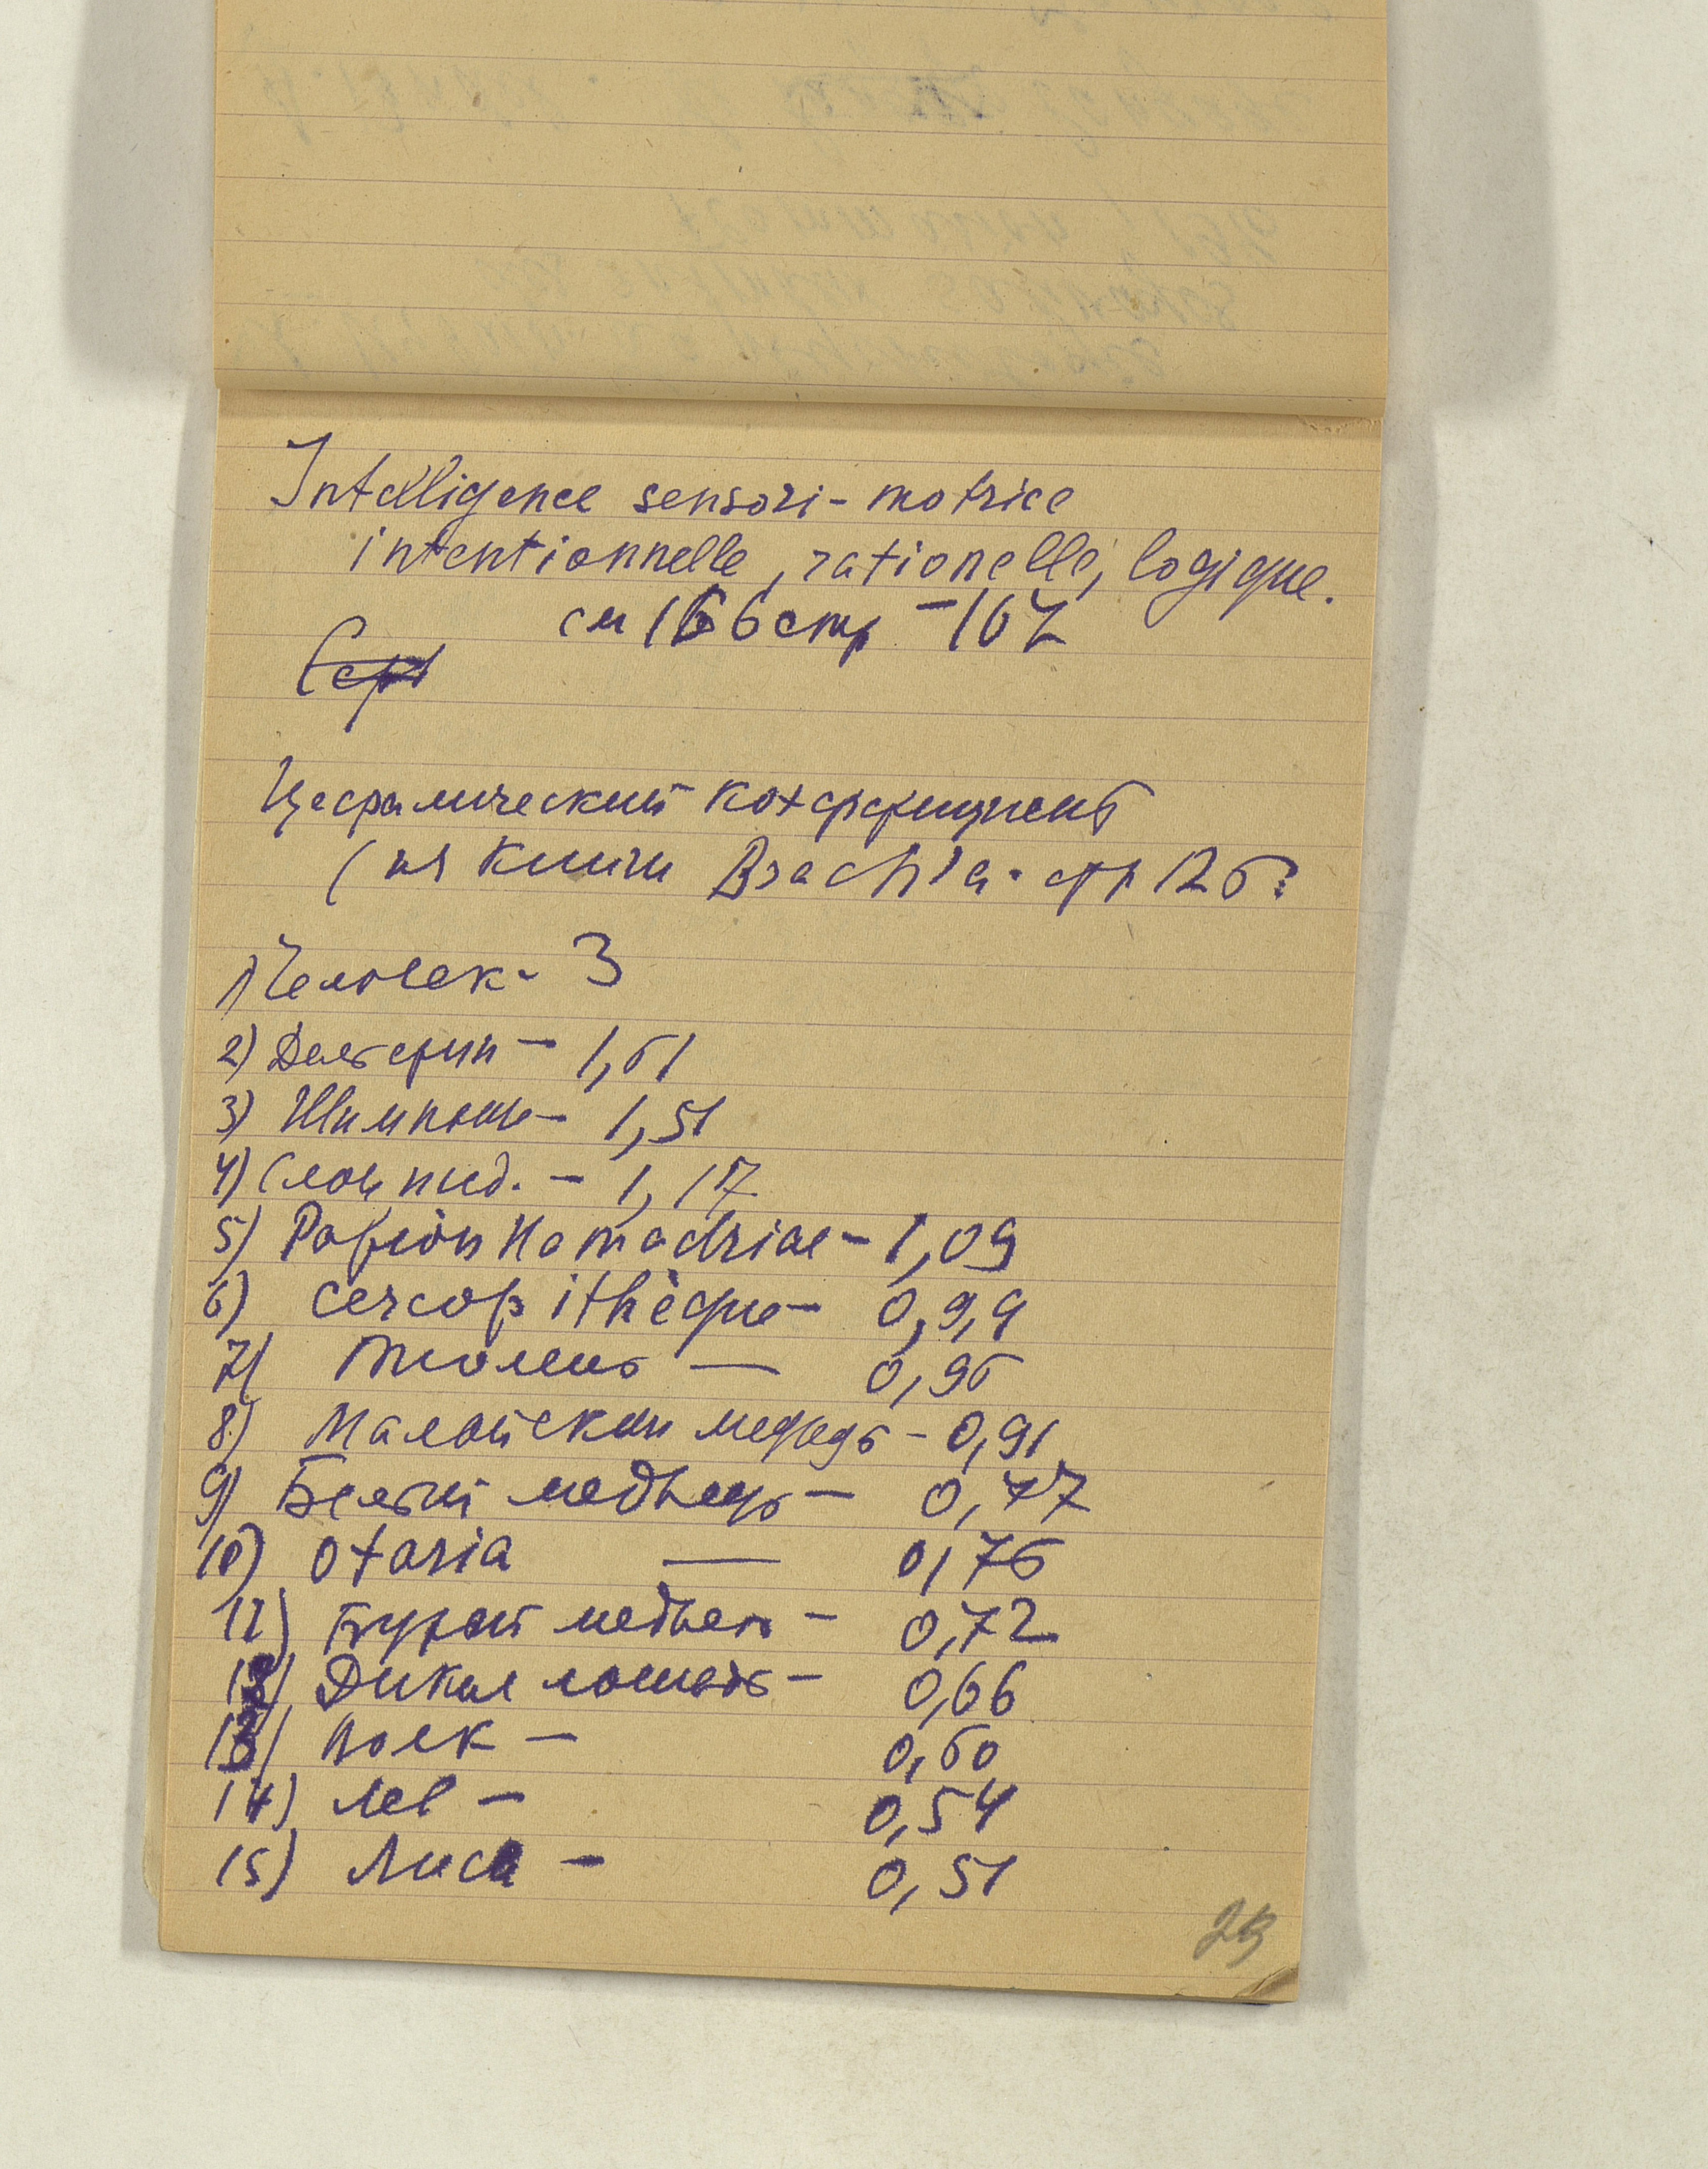 Intelligence sensori-motrice
intentionnelle, rationelle, logique.
см 166 стр - 167
Цефалический коэффициент
(из книги Brachi'a. стр 126?
1) Человек - 3
2) Дельфин - 1,61
3) Шимпанзе - 1,51
4) Слон инд. - 1,17
5) Papion Hamadriae - 1,09
6) cercopithèque - 0,9,9
7) Тюлень — 0,96
8) Малайский медведь - 0,91
9) Белый медведь - 0,77
10) Otaria — 0,76
11) Бурый медведь - 0,72
12) Дикая лошадь - 0,66
13) Волк - 0,60
14) Лев - 0,54
15) Лиса - 0,51